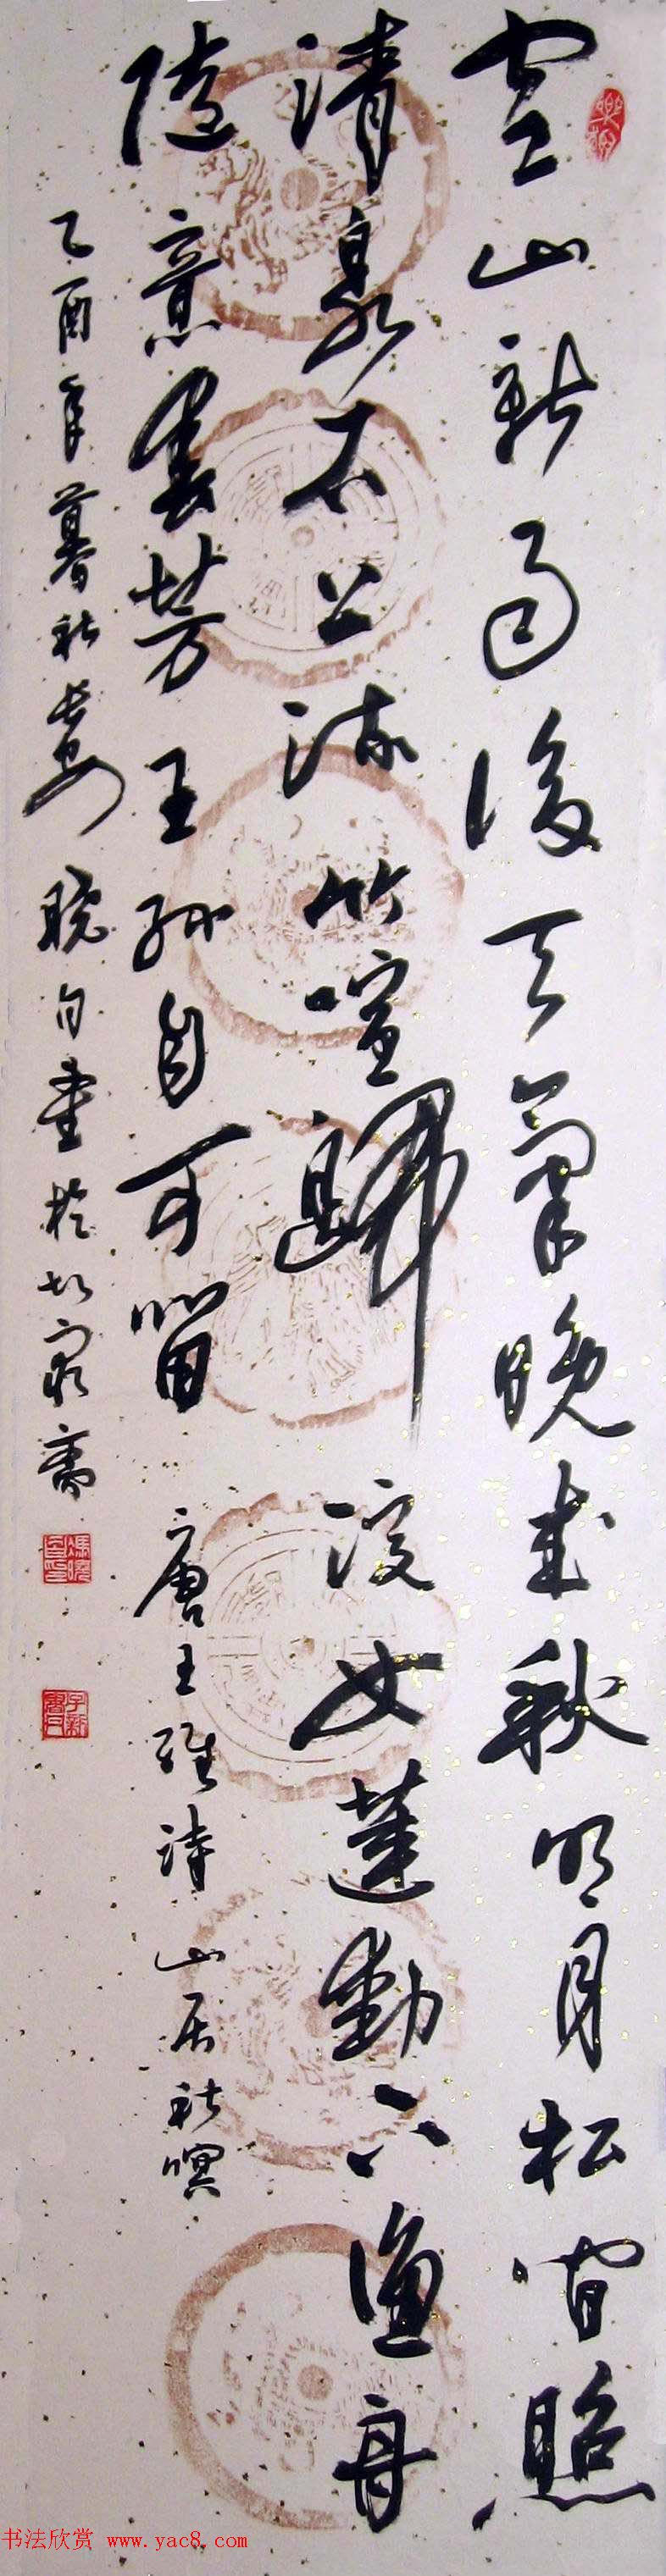 空山新雨後天氣晚来秋明月松间照
清泉石上流竹喧歸浣女蓮動下漁舟
随意春芳王孙自可留 唐王维诗 山居秋暝
乙酉年暮秋長安 晓白書於斋
书法欣赏 www.yac8.com